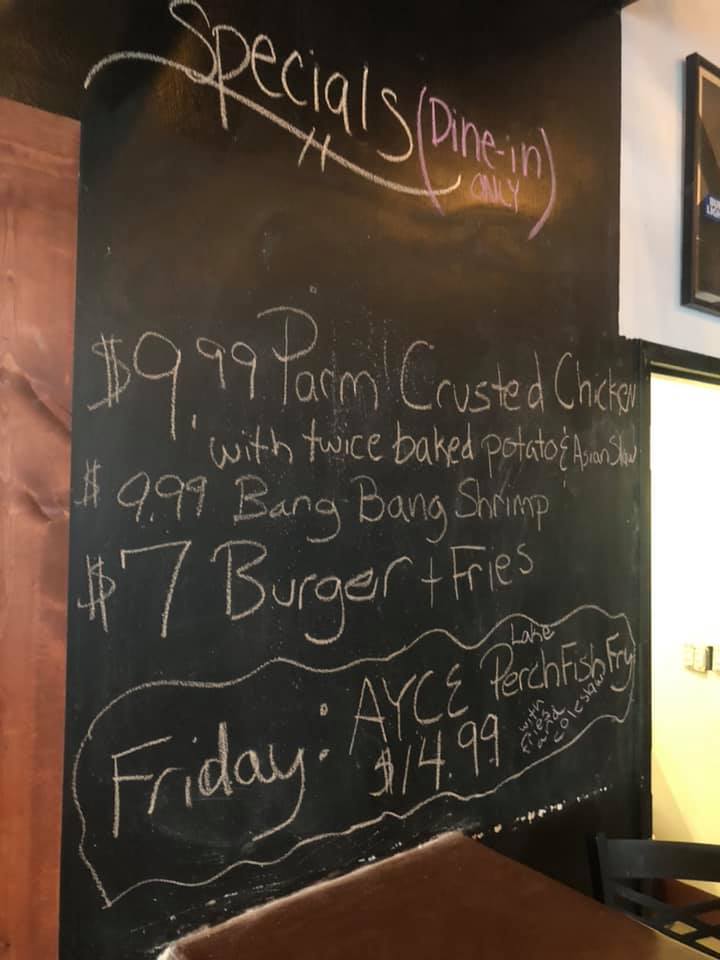 Specials (Dine-in ONLY)
$9.99 Parm Crusted Chicken
with twice baked potato & Asian Slaw
$9.99 Bang Bang Shrimp
$7 Burger + Fries
Friday: AYCE Lake Perch Fish Fry
$14.99 with fries and coleslaw
BUD LIGHT